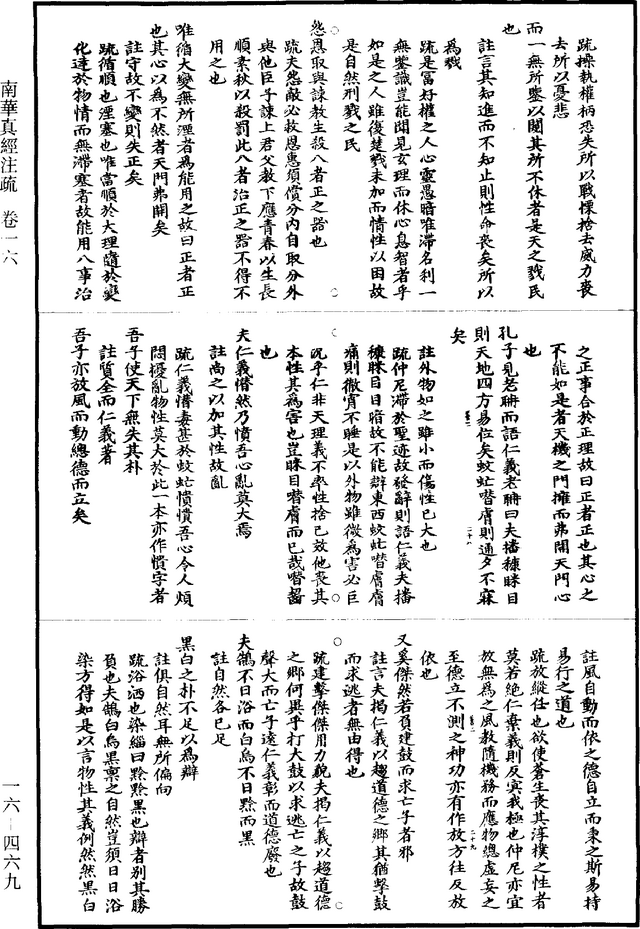 疏操執權柄恐失所以戰慄捨去威力哀
去所以憂悲
而一無所鑒以闚其所不休者是天之戮民
也
註言其知進而不知止則性命喪矣所以
為戮
疏是富好權之人心靈愚暗唯滯名利一
無鑒識豈能闚見玄理而休心息智者乎
如是之人雖復楚戮未加而情性以困故
是自然刑戮之民
怨恩取與諫教生殺八者正之器也
疏夫怨敵必殺恩惠須償分內自取分外
與他臣子諫上君父教下應青春以生長
順素秋以殺罰此八者治正之器不得不
用之也
唯循大變無所湮者為能用之故曰正者正
也其心以為不然者天門弗開矣
註守故不變則失正矣
疏循順也湮塞也唯當順於大理隨於變
化達於物情而無滯塞者故能用八事治
之正事合於正理故曰正者正也其心之
不能如是者天機之門擁而弗開天門心
也
孔子見老聃而語仁義老聃曰夫播糠眯目
則天地四方易位矣蚊虻噆膚則通夕不寐
矣
註外物加之雖小而傷性已大也
疏仲尼滯於聖迹故發辭則語仁義夫播
糠眯目目暗故不能辯東西蚊虻噆膚膚
痛則徹宵不睡是以外物雖微為害必巨
況乎仁非天理義不率性捨己效他喪其
本性其為害也豈眯目噆膚而已哉噆齧
也
夫仁義憯然乃憤吾心亂莫大焉
註尚之以加其性故亂
疏仁義憯毒甚於蚊虻憒憒吾心令人煩
悶擾亂物性莫大於此一本亦作憤字者
吾子使天下無失其朴
註質全而仁義著
吾子亦放風而動總德而立矣
註風自動而依之德自立而秉之斯易持
易行之道也
疏放縱任也欲使蒼生喪其淳樸之性者
莫若絕仁棄義則反冥我極也仲尼亦宜
放無為之風教隨機務而應物總虛妄之
至德立不測之神功亦有作放方往反放
依也
又奚傑然若負建鼓而求亡子者邪
註言夫揭仁義以趨道德之鄉其猶擊鼓
而求逃者無由得也
疏建擊傑傑用力貌夫揭仁義以趨道德
之鄉何異乎打大鼓以求逃亡之子故鼓
聲大而亡子遠仁義彰而道德廢也
夫鵠不日浴而白烏不日黔而黑
註自然各已足
黑白之朴不足以為辯
註俱自然耳無所偏向
疏浴洒也染緇曰黔黔黑也辯者別其勝
負也夫鵠白烏黑稟之自然豈須日日浴
染方得如是以言物性其義例然然黑白
南華真經注疏 卷一六
一六－四六九